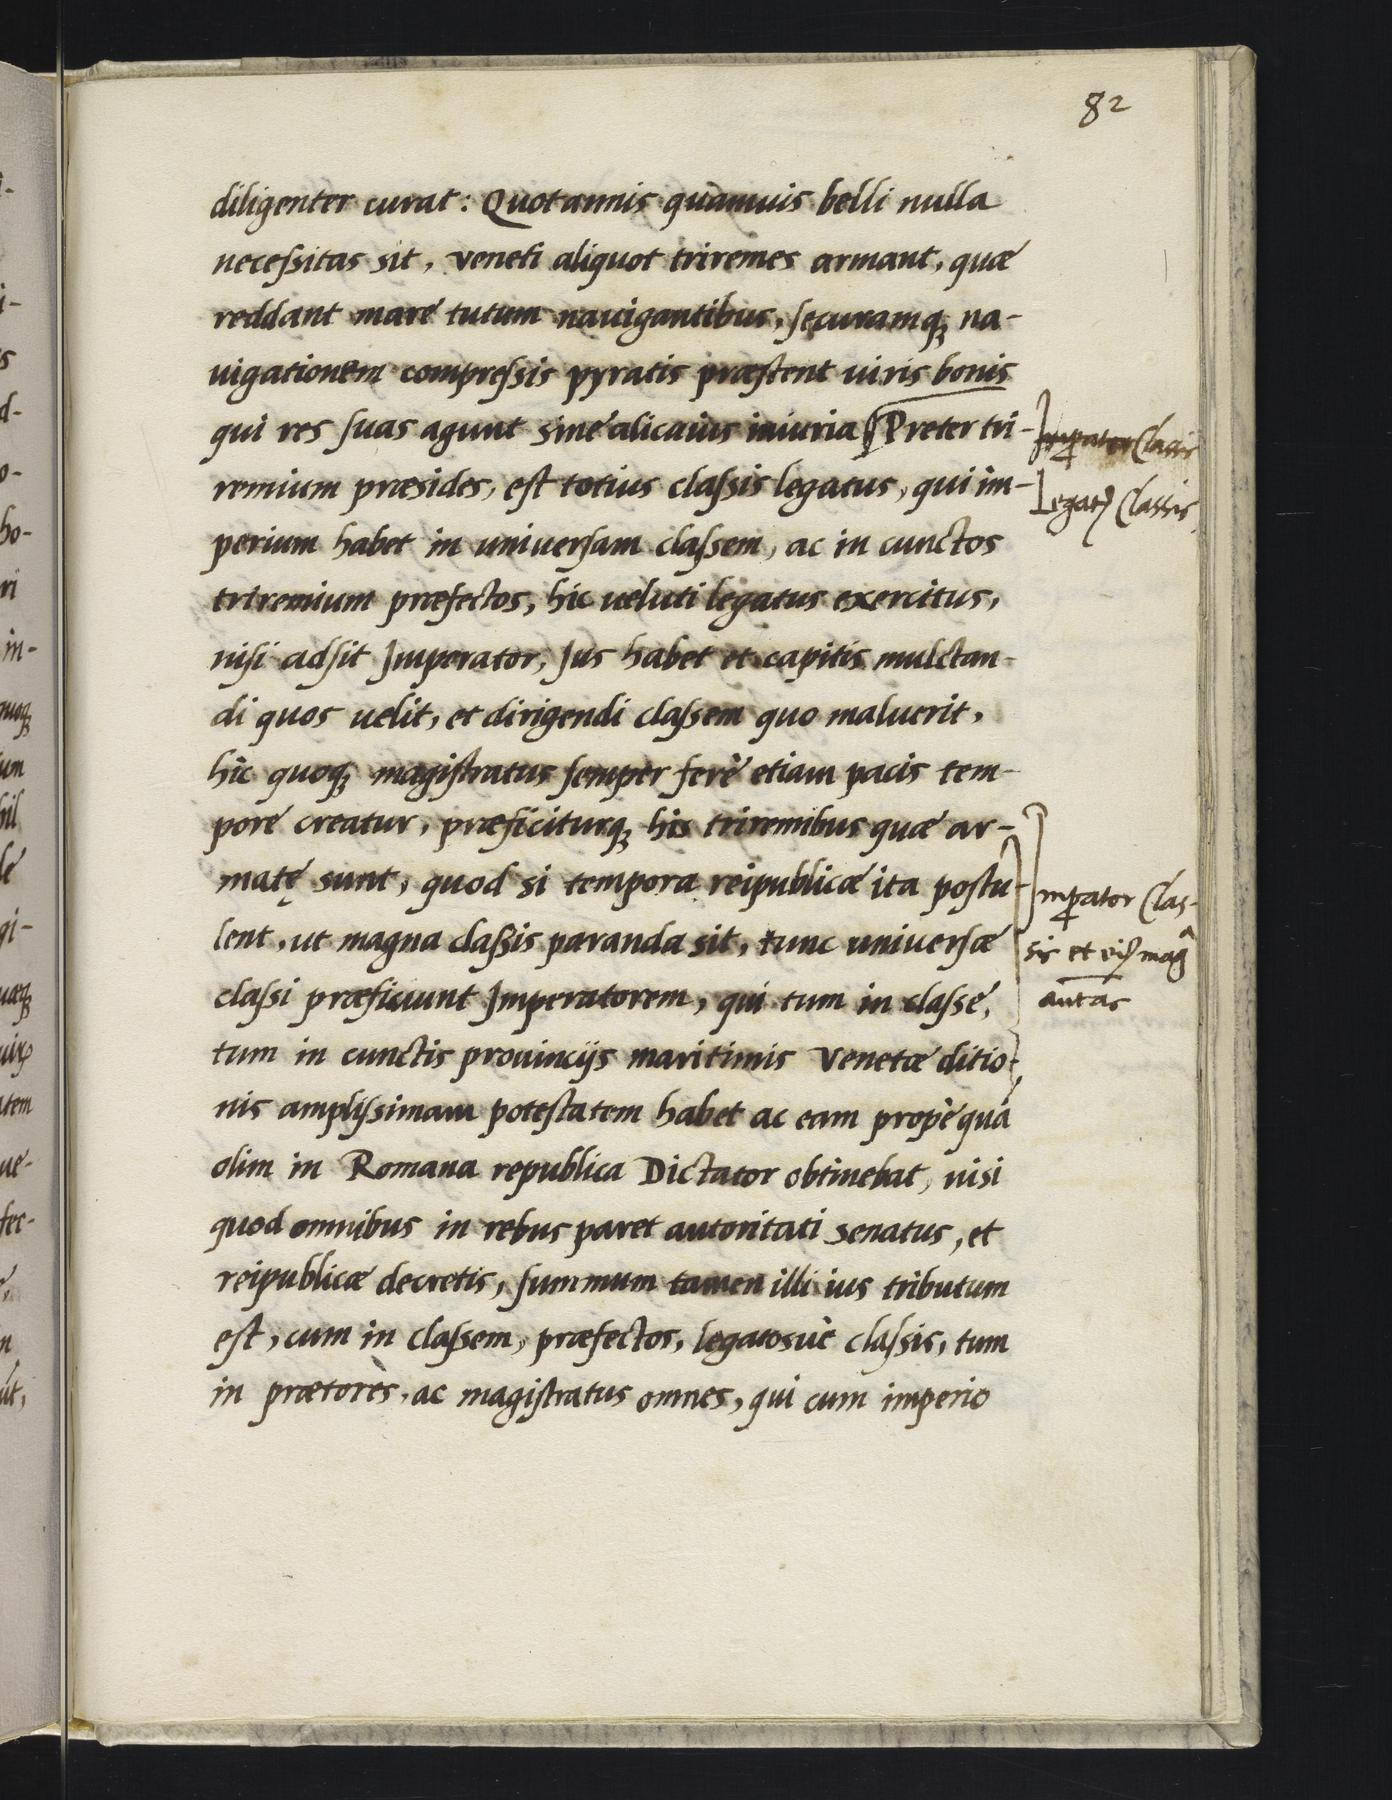 82
diligenter curat: Quotannis quamuis belli nulla
necessitas sit, Veneti aliquot triremes armant, quæ
reddant mare tutum nauigantibus, securamq; na-
uigationem compressis pyratis præstent uiris bonis
qui res suas agunt sine alicuius iniuria Preter tri-
remium præsides, est totius classis legatus, qui im-
perium habet in uniuersam classem, ac in cunctos
triremium præfectos, hic ueluti legatus exercitus,
nisi adsit Imperator, Jus habet et capitis mulctan-
di quos uelit, et dirigendi classem quo maluerit,
hic quoq; magistratus semper ferè etiam pacis tem-
pore creatur, præficiturq; his triremibus quæ ar-
matę sunt, quod si tempora reipublicæ ita postu-
lent, ut magna classis paranda sit, tunc uniuersæ
classi præficiunt Imperatorem, qui tum in classe,
tum in cunctis prouincijs maritimis Venetæ ditio-
nis amplissimam potestatem habet ac eam propè quã
olim in Romana republica Dictator obtinebat, nisi
quod omnibus in rebus paret autoritati senatus, et
reipublicæ decretis, summum tamen illi ius tributum
est, cum in classem, præfectos, legatosuè classis, tum
in prætores, ac magistratus omnes, qui cum imperio
Imperator Classis
Legatꝰ Classis
Imperator Clas-
sis et eiꝰ magª
autas